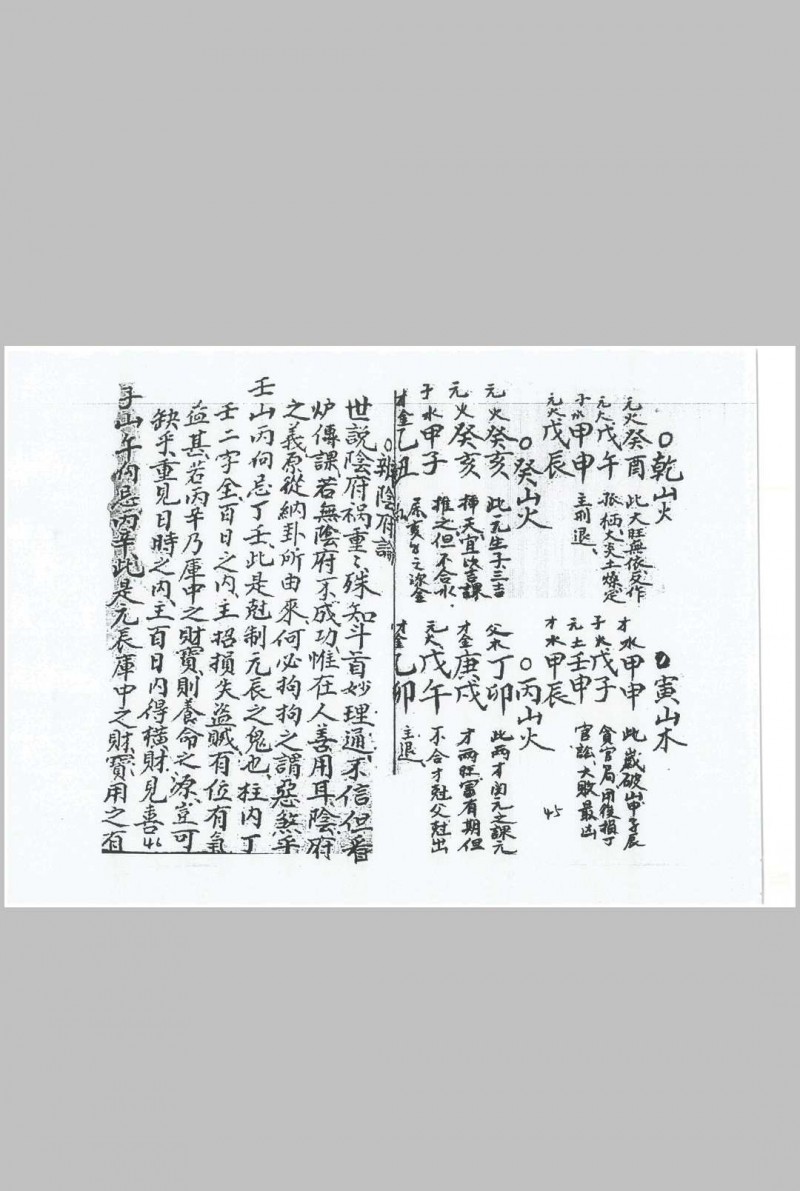 乾山火
元火癸酉
元火戊午
子水甲申
元火戊辰
此大旺無依反作
孤柄火炎土燥定
主刑退、
寅山木
才水甲申
子火戊子
元土壬申
才水甲辰
此歲破山申子辰
貪官局用後損丁
官訟、大敗最凶
45
癸山火
元火癸亥
元火癸亥
子水甲子
才金乙丑
此元生于三吉
揮天宜以吉課
推之但不合水
丙山火
父木丁卯
才金庚戌
元火戊午
才金乙卯
此两才向元之課元
才两旺富有期但
不合才尅父尅出
主退
辨陰府論
世説陰府祸重重、殊知斗首妙理通、不信但看
炉傳課、若無陰府不成功、惟在人善用耳陰府
之義原從納卦所由來、何必拘拘之謂惡煞乎
壬山丙向忌丁壬、此是尅制元辰之鬼也柱内丁
壬二字全百日之内、主招損失盜賊、有位有氣
益甚若丙辛乃庫中之財寶、則養命之源、豈可
缺乎重見日時之内、主百日内得横財、見喜
46
子山午向忌丙辛、此是元辰庫中之財寶用之有